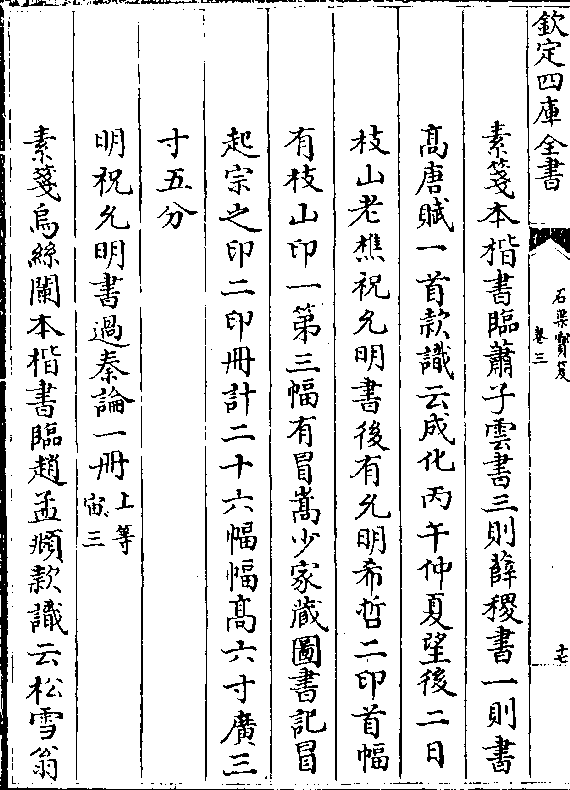 欽定四庫全書
石渠寳笈
卷三
十七
素箋本楷書臨蕭子雲書三則薛稷書一則書
髙唐賦一首款識云成化丙午仲夏望後二日
枝山老樵祝允明書後有允明希哲二印首幅
有枝山印一第三幅有冒嵩少家藏圖書記冒
起宗之印二印冊計二十六幅幅髙六寸廣三
寸五分
明祝允明書過秦論一冊上等
宙三
素箋烏絲闌本楷書臨趙孟頫款識云松雪翁